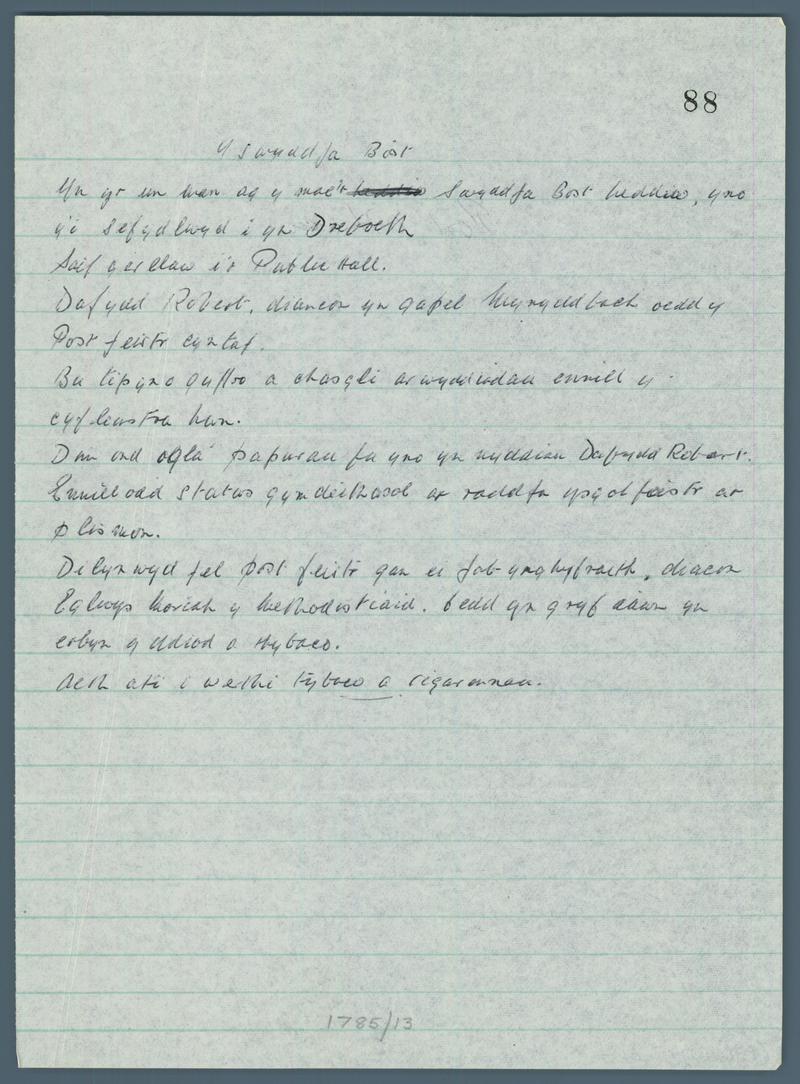 88
Y Swyddfa Bost
Yn yr un man ag y mae'r heddiw Swyddfa Bost heddiw, yno
y'i sefydlwyd i yn Dreboeth
Saif gerllaw i'r Public Hall.
Dafydd Robert, diacon yn gapel Mynyddbach oedd y
Post feistr cyntaf.
Bu tipyn o gyffro a chasgli arwyddiodau ennill y
cyfleustra hwn.
Dim ond ogla papurau fu yno yn nyddiau Dafydd Robert.
Ennillodd status gymdeithasol ar raddfa ysgolfeistr ar
plismon.
Dilynwyd fel post feistr gan ei fab-ynghyfraith, diacon
Eglwys Moriah y Methodistiaid. Oedd yn gryf iawn yn
erbyn y ddiod a thybaco.
Aeth ati i werthi tybaco a sigarennau.
1785/13